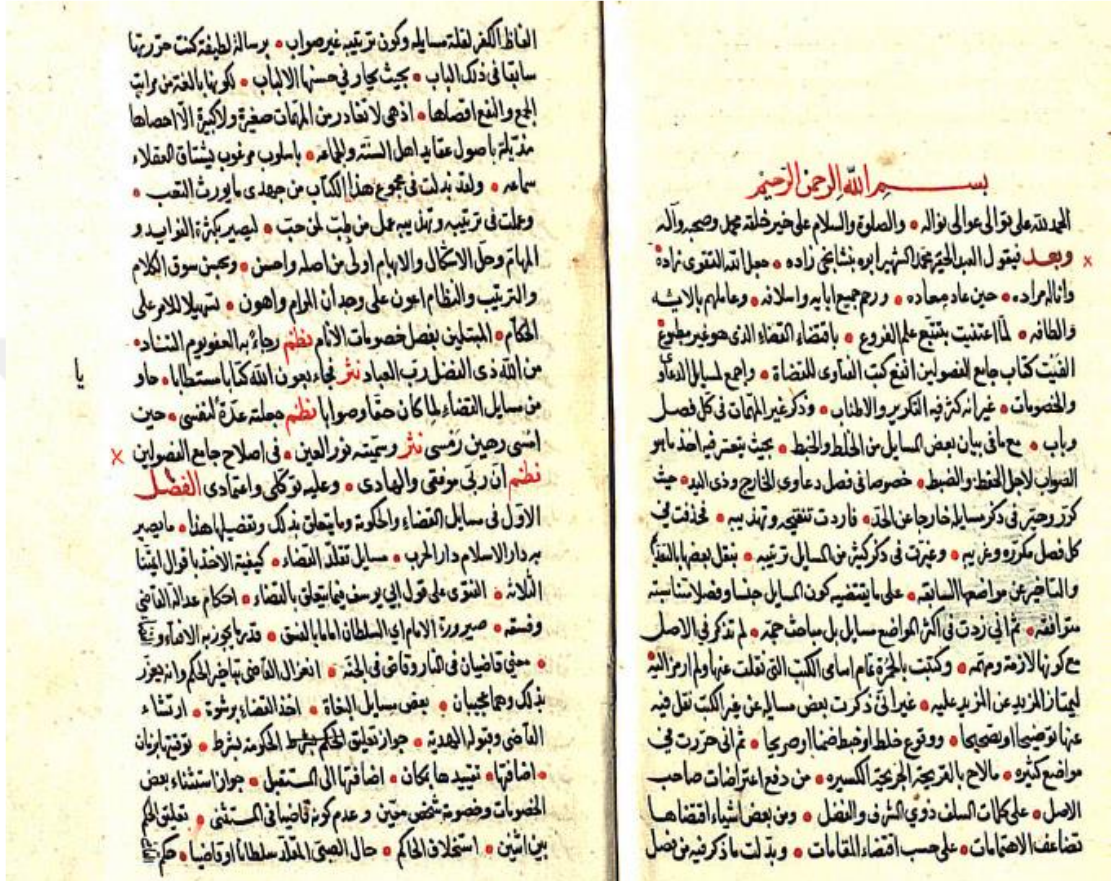 بســـم الله الرحمن الرحيم
الحمد لله على توالى عوالى نواله • والصلوة والسلام على خير خلقه محمد وصحبه وآله
وبعد فيقول العبد الحقير محمد الشهير ابره بنشانجى زاده • جعل الله التقوى زاده
واناله مراده • حين عاد معاده • ورحم جميع ابايه واسلافه • وعاملهم بالايه
والطافه • لما اعتنيت بتتبع علم الفروع • باقتضاء القضاء الذى هو غير مطبوع
الفيت كتاب جامع الفصولين انفع كتب الفتاوى للقضاة • واجمع لمسايل الدعاو
والخصومات • غير انه كثر فيه التكرير والاطناب • وذكر غير المهمات فى كل فصل
وباب • مع ما فى بيان بعض المسايل من الخلط والخبط • بحيث يتعسر فيه اخذ ما هو
الصواب لاهل الحفظ والضبط • خصوصا فى فصل دعاوى الخارج وذى اليد • حيث
كرر وحير فى ذكر مسايله خارجا عن الحد • فاردت تنقيحه وتهذيبه • فحذفت فى
كل فصل مكرره وغريبه • وغيرت فى ذكر كثير من المسايل ترتيبه • بنقل بعضها بالتقد
والتاخير عن مواضعها السابقه • على ما يقتضيه كون المسايل جنسا وفصلا متناسبة
متوافقه • ثم انى زدت فى اكثر المواضع مسايل بل مباحث جمة • لم تذكر فى الاصل
مع كونها لازمة ومهمه • وكتبت بالحمرة تمام اسامى الكتب التى نقلت عنها ولم ارمز اليه
ليمتاز المزيد عن المزيد عليه • غير انى ذكرت بعض مسايل عن غير اكتب نقل فيه
عنها توضيحا او تصحيحا • ووقوع خلط او خبط ضمنا او صريحا • ثم انى حررت فى
مواضع كثيره • ما لاح بالقريحة الجريحة الكسيره • من دفع اعتراضات صاحب
الاصل • على كلمات السلف ذوى الشرف والفضل • ومن بعض اشياء اقتضاها
تضاعف الاهتمامات • على حسب اقتضاء المقامات • وبدلت ما ذكر فيه من فصل
الفاظ الكفر لقلة مسايله وكون ترتيبه غير صواب • برسالة لطيفة كنت حررتها
سابقا فى ذلك الباب • بحيث يحار فى حسنها الالباب • لكونها بالغة من مراتب
الجمع والنفع اقصاها • اذ هى لا تغادر من المهمات صغيرة ولا كبيرة الا احصاها
مذيلة باصول عقايد اهل السنة والجماعه • باسلوب مرغوب يشتاق العقلاء
سماعه • ولقد بذلت فى مجموع هذا الكتاب من جهدى ما يورث التعب •
وعملت فى ترتيبه وتهذيبه عمل من طب لمن حب • ليصير بكثرة الفوايد و
المهام وحل الاشكال والابهام اولى من اصله واحسن • وبحسن سوق الكلام
والترتيب والنظام اعون على وجدان المرام واهون • تسهيلا للامر على
الحكام • المبتلين بفصل خصومات الأنام نظم رجاء به العفو يوم التناد •
من الله ذى الفضل رب العباد نثر فجاء بعون الله كتابا مستطابا • حاو
يا
من مسايل القضاء لما كان حقا وصوابا نظم جعلته عدة لنفسى • حين
امسى رهين رمسى نثر وسميته نور العين • فى اصلاح جامع الفصولين
نظم ان ربى موفقى والهادى • وعليه توكلى واعتمادى الفصل
الاول فى مسايل القضاء والحكومة وما يتعلق بذلك وتفصيلها هذا • ما يصير
به دار الاسلام دار الحرب • مسايل تقلد القضاء • كيفية الاخذ باقوال ائمتنا
الثلاثة • الفتوى على قول ابى يوسف فيما يتعلق بالقضاء • احكام عدالة القاضى
وفسقه • صيرورة الامام اى السلطان اماما بالفسق • قدر ما يجوز به الافتاء و
• معنى قاضيان فى النار وقاض فى الجنة • انعزال القاضى بتاخير الحكم وانه يعزر
بذلك وهما عجيبان • بعض مسايل البغاة • اخذ القضاء برشوة • ارتشاء
القاضى وقبوله الهدية • جواز تعليق الحكم بشرط الحكومة بشرط • توقيتها بزمان
• اضافتها • تقييدها بمكان • اضافتها الى المستقبل • جواز استثناء بعض
الخصومات وخصومة شخص معين وعدم كونه قاضيا فى المستثنى • تعلق الحكم
بين اثنين • استخلاف الحاكم • حال الصبى المقلد سلطانا او قاضيا • حكم